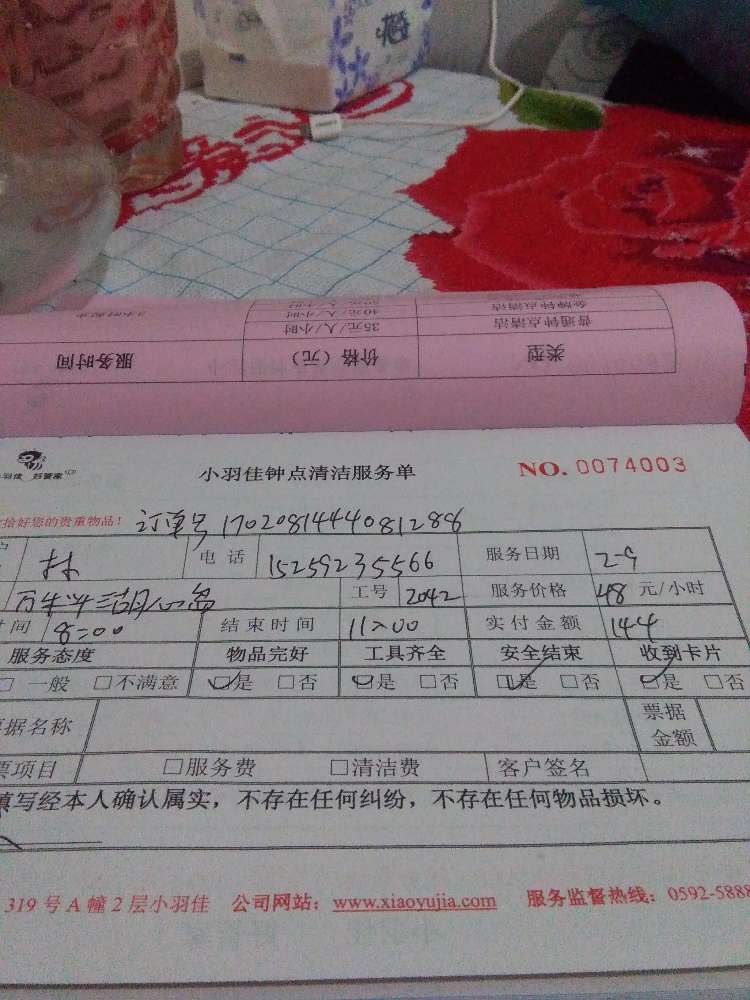 橙
金牌钟点清洁 40元/人/小时 2小时起步
普通钟点清洁 35元/人/小时
类型 价格（元） 服务时间
小羽佳 好管家 小羽佳钟点清洁服务单 NO. 0074003
拾好您的贵重物品！ 订单号 1702081444081288
林 电话 15259235566 服务日期 2-9
湖心岛 工号 2042 服务价格 48 元/小时
时间 8:00 结束时间 11:00 实付金额 144
服务态度 物品完好 工具齐全 安全结束 收到卡片
□ 一般 □不满意 □是 □否 □是 □否 □是 □否 □是 □否
票据名称 票据金额
票项目 □服务费 □清洁费 客户签名
填写经本人确认属实，不存在任何纠纷，不存在任何物品损坏。
319号A幢2层小羽佳 公司网站：www.xiaoyujia.com 服务监督热线：0592-5888